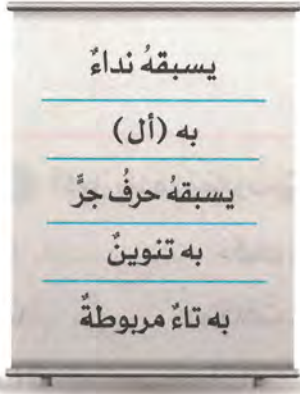 يسبقهُ نداءٌ
به (أل)
يسبقهُ حرفُ جرٍّ
به تنوينٌ
به تاءٌ مربوطةٌ